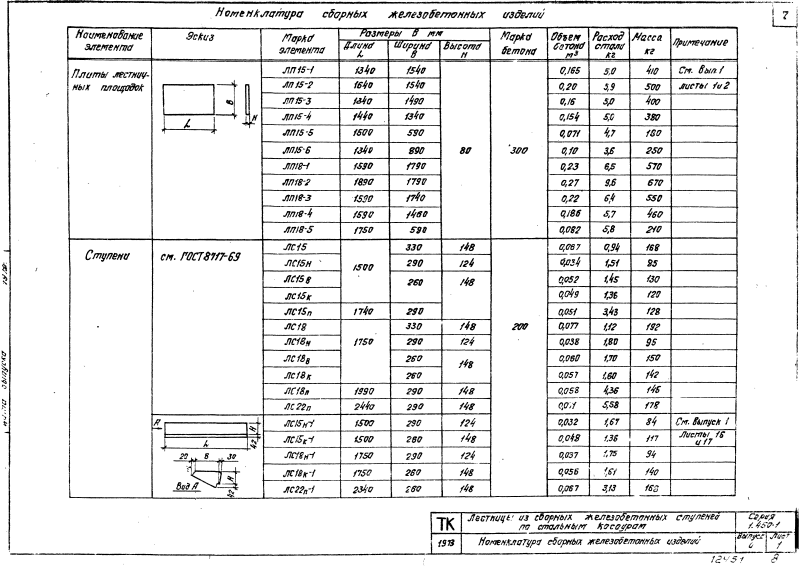 Номенклатура сборных железобетонных изделий
7
Наименование элемента Эскиз Марка элемента Размеры в мм Марка бетона Объем бетона м³ Расход стали кг Масса кг Примечание
Длина L Ширина B Высота H
Плиты лестнич- ЛП15-1 1340 1540 0,165 5,0 410 См. Вып. 1
ных площадок ЛП15-2 1640 1540 0,20 5,9 500 листы 1и2
ЛП15-3 1340 1490 0,16 5,0 400
B ЛП15-4 1440 1340 0,154 5,0 380
H ЛП15-5 1600 590 0,071 4,7 180
L ЛП15-6 1340 890 80 300 0,10 3,6 250
ЛП18-1 1590 1790 0,23 6,5 570
ЛП18-2 1890 1790 0,27 9,6 670
ЛП18-3 1590 1740 0,22 6,4 550
ЛП18-4 1590 1460 0,186 5,7 460
ЛП18-5 1750 590 0,082 5,8 210
Ступени см. ГОСТ8717-69 ЛС15 1500 330 148 200 0,067 0,94 168
ЛС15н 290 124 0,034 1,51 85
ЛС15в 260 148 0,052 1,45 130
ЛС15к 0,049 1,36 120
ЛС15п 1740 290 0,051 3,43 128
ЛС18 1750 330 148 0,077 1,12 192
ЛС18н 290 124 0,038 1,80 95
ЛС18в 260 148 0,060 1,70 150
ЛС18к 260 0,057 1,60 142
ЛС18п 1990 290 148 0,058 4,36 146
ЛС22п 2440 290 148 5,58 178
A H ЛС15н-1 1500 290 124 0,032 1,67 84 См. Выпуск 1
L 42 ЛС15к-1 1500 260 148 0,048 1,36 117 Листы 16 и 17
20 B 30 ЛС18н-1 1750 290 124 0,037 1,75 94
H ЛС18к-1 1750 260 148 0,056 1,61 140
Вид А 42 ЛС22п-1 2340 260 148 0,067 3,13 168
ТК Лестницы из сборных железобетонных ступеней по стальным косоурам Серия 1.450-1
1973 Номенклатура сборных железобетонных изделий Выпуск Лист 1
12451 8
выпуска